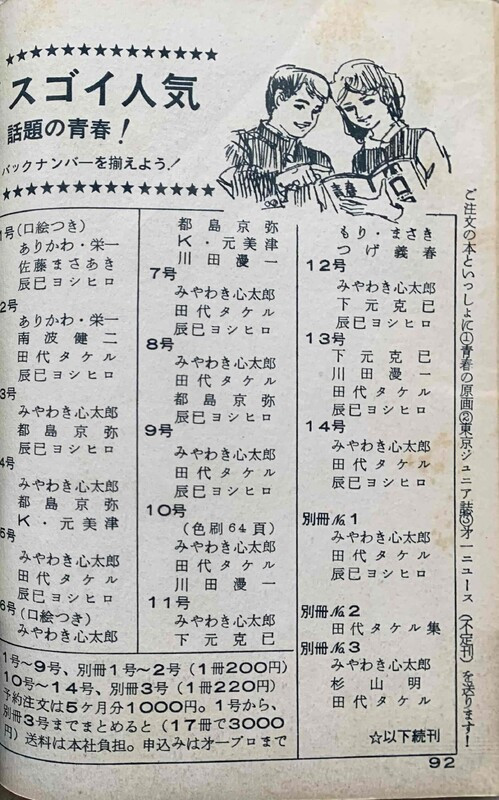 ★★★★★★★★★★★★★★★★
スゴイ人気
話題の青春！
バックナンバーを揃えよう！
★★★★★★★★★★★★★★★★
1号(口絵つき)
ありかわ・栄一
佐藤まさあき
辰巳ヨシヒロ
2号
ありかわ・栄一
南波健二
田代タケル
辰巳ヨシヒロ
3号
みやわき心太郎
都島京弥
辰巳ヨシヒロ
4号
みやわき心太郎
都島京弥
K・元美津
5号
みやわき心太郎
田代タケル
辰巳ヨシヒロ
6号(口絵つき)
みやわき心太郎
都島京弥
K・元美津
川田漫一
7号
みやわき心太郎
田代タケル
辰巳ヨシヒロ
8号
みやわき心太郎
田代タケル
都島京弥
辰巳ヨシヒロ
9号
みやわき心太郎
田代タケル
辰巳ヨシヒロ
10号
(色刷64頁)
みやわき心太郎
田代タケル
川田漫一
11号
みやわき心太郎
下元克巳
もり・まさき
つげ義春
12号
みやわき心太郎
下元克巳
辰巳ヨシヒロ
13号
下元克巳
川田漫一
田代タケル
辰巳ヨシヒロ
14号
みやわき心太郎
田代タケル
辰巳ヨシヒロ
別冊№1
みやわき心太郎
田代タケル
辰巳ヨシヒロ
別冊№2
田代タケル集
別冊№3
みやわき心太郎
杉山明
田代タケル
☆以下続刊
1号〜9号、別冊1号〜2号(1冊200円)
10号〜14号、別冊3号(1冊220円)
予約注文は5ケ月分1000円。1号から、
別冊3号までまとめると(17冊で3000
円)送料は本社負担。申込みはオープロまで
ご注文の本といっしょに①青春の原画②東京ジュニア誌③才一ニュース(不定刊)を送ります！
青春
92